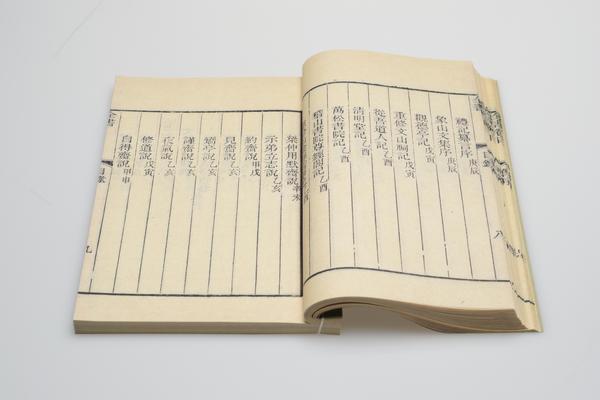 禮記纂言序庚辰
象山文集序庚辰
觀德亭記戊寅
重修文山祠記戊寅
從吾道人記乙酉
清明堂記乙酉
萬松書院記乙酉
稽山書院尊經閣記乙酉
梁仲用默齋說辛未
示弟立志說乙亥
約齋說甲戌
見齋說乙亥
矯亭說乙亥
謹齋說乙亥
夜氣說乙亥
修道說戊寅
自得齋說甲申
目錄
九